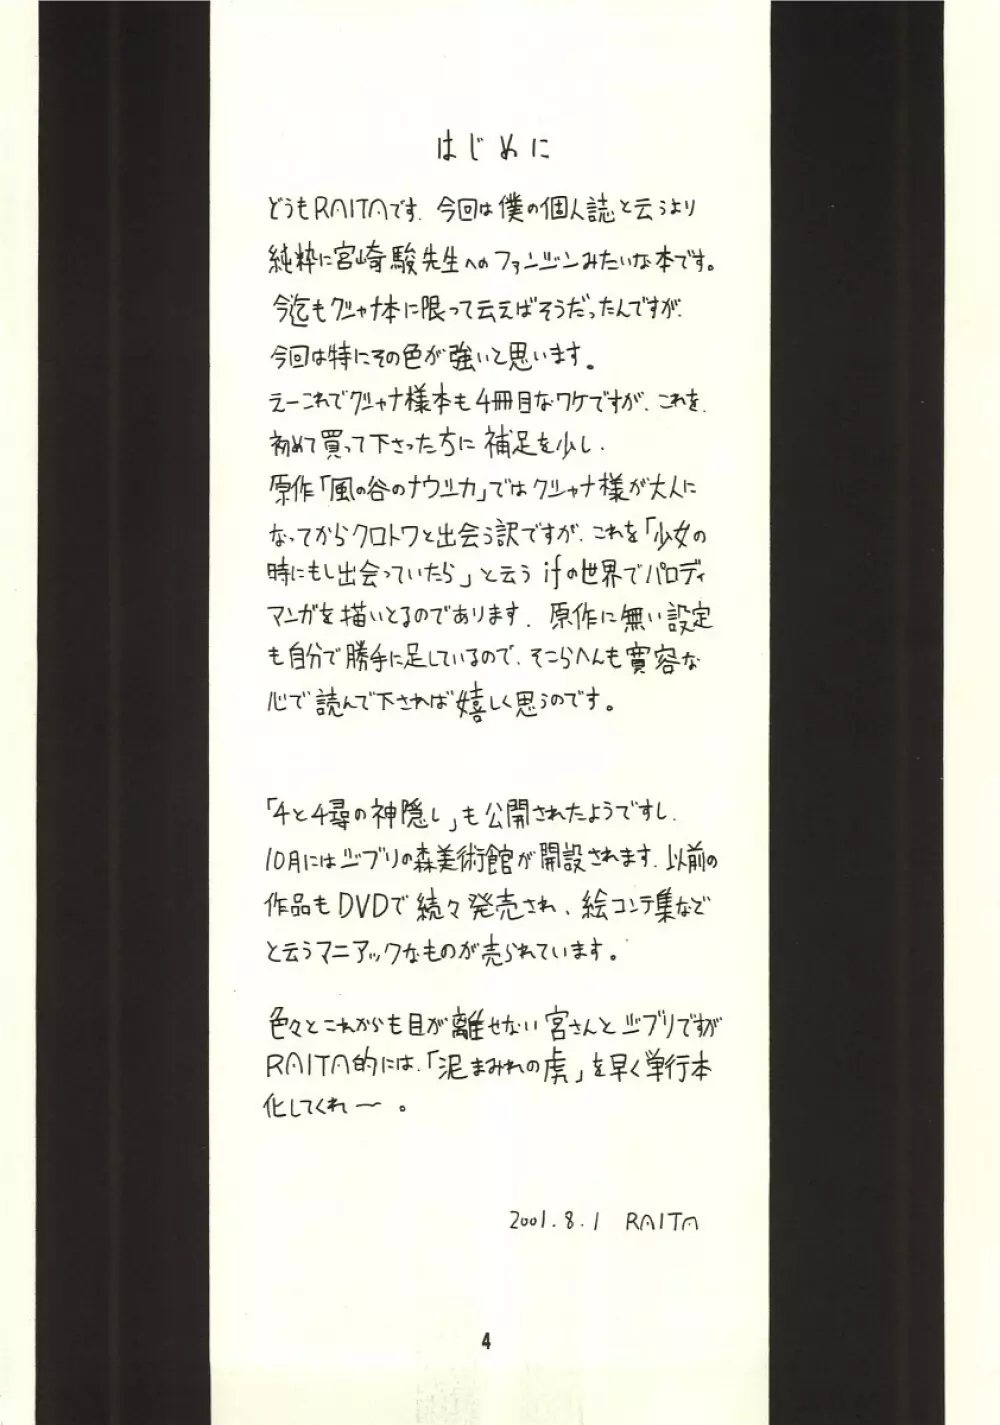 はじめに
どうもRAITAです．今回は僕の個人誌と云うより
純粋に宮崎駿先生へのファンジンみたいな本です。
今迄もクシャナ本に限って云えばそうだったんですが．
今回は特にその色が強いと思います。
えーこれでクシャナ様本も4冊目なワケですが、これを．
初めて買って下さった方に補足を少し．
原作「風の谷のナウシカ」ではクシャナ様が大人に
なってからクロトワと出会う訳ですが、これを「少女の
時にもし出会っていたら」と云うifの世界でパロディ
マンガを描いとるのであります．原作に無い設定
も自分で勝手に足しているので、そこらへんも寛容な
心で読んで下されば嬉しく思うのです。
「4と4尋の神隠し」も公開されたようですし．
10月にはジブリの森美術館が開設されます．以前の
作品もDVDで続々発売され、絵コンテ集など
と云うマニアックなものが売られています。
色々とこれからも目が離せない宮さんとジブリですが
RAITA的には、「泥まみれの虎」を早く単行本
化してくれ〜。
2001.8.1 RAITA
4